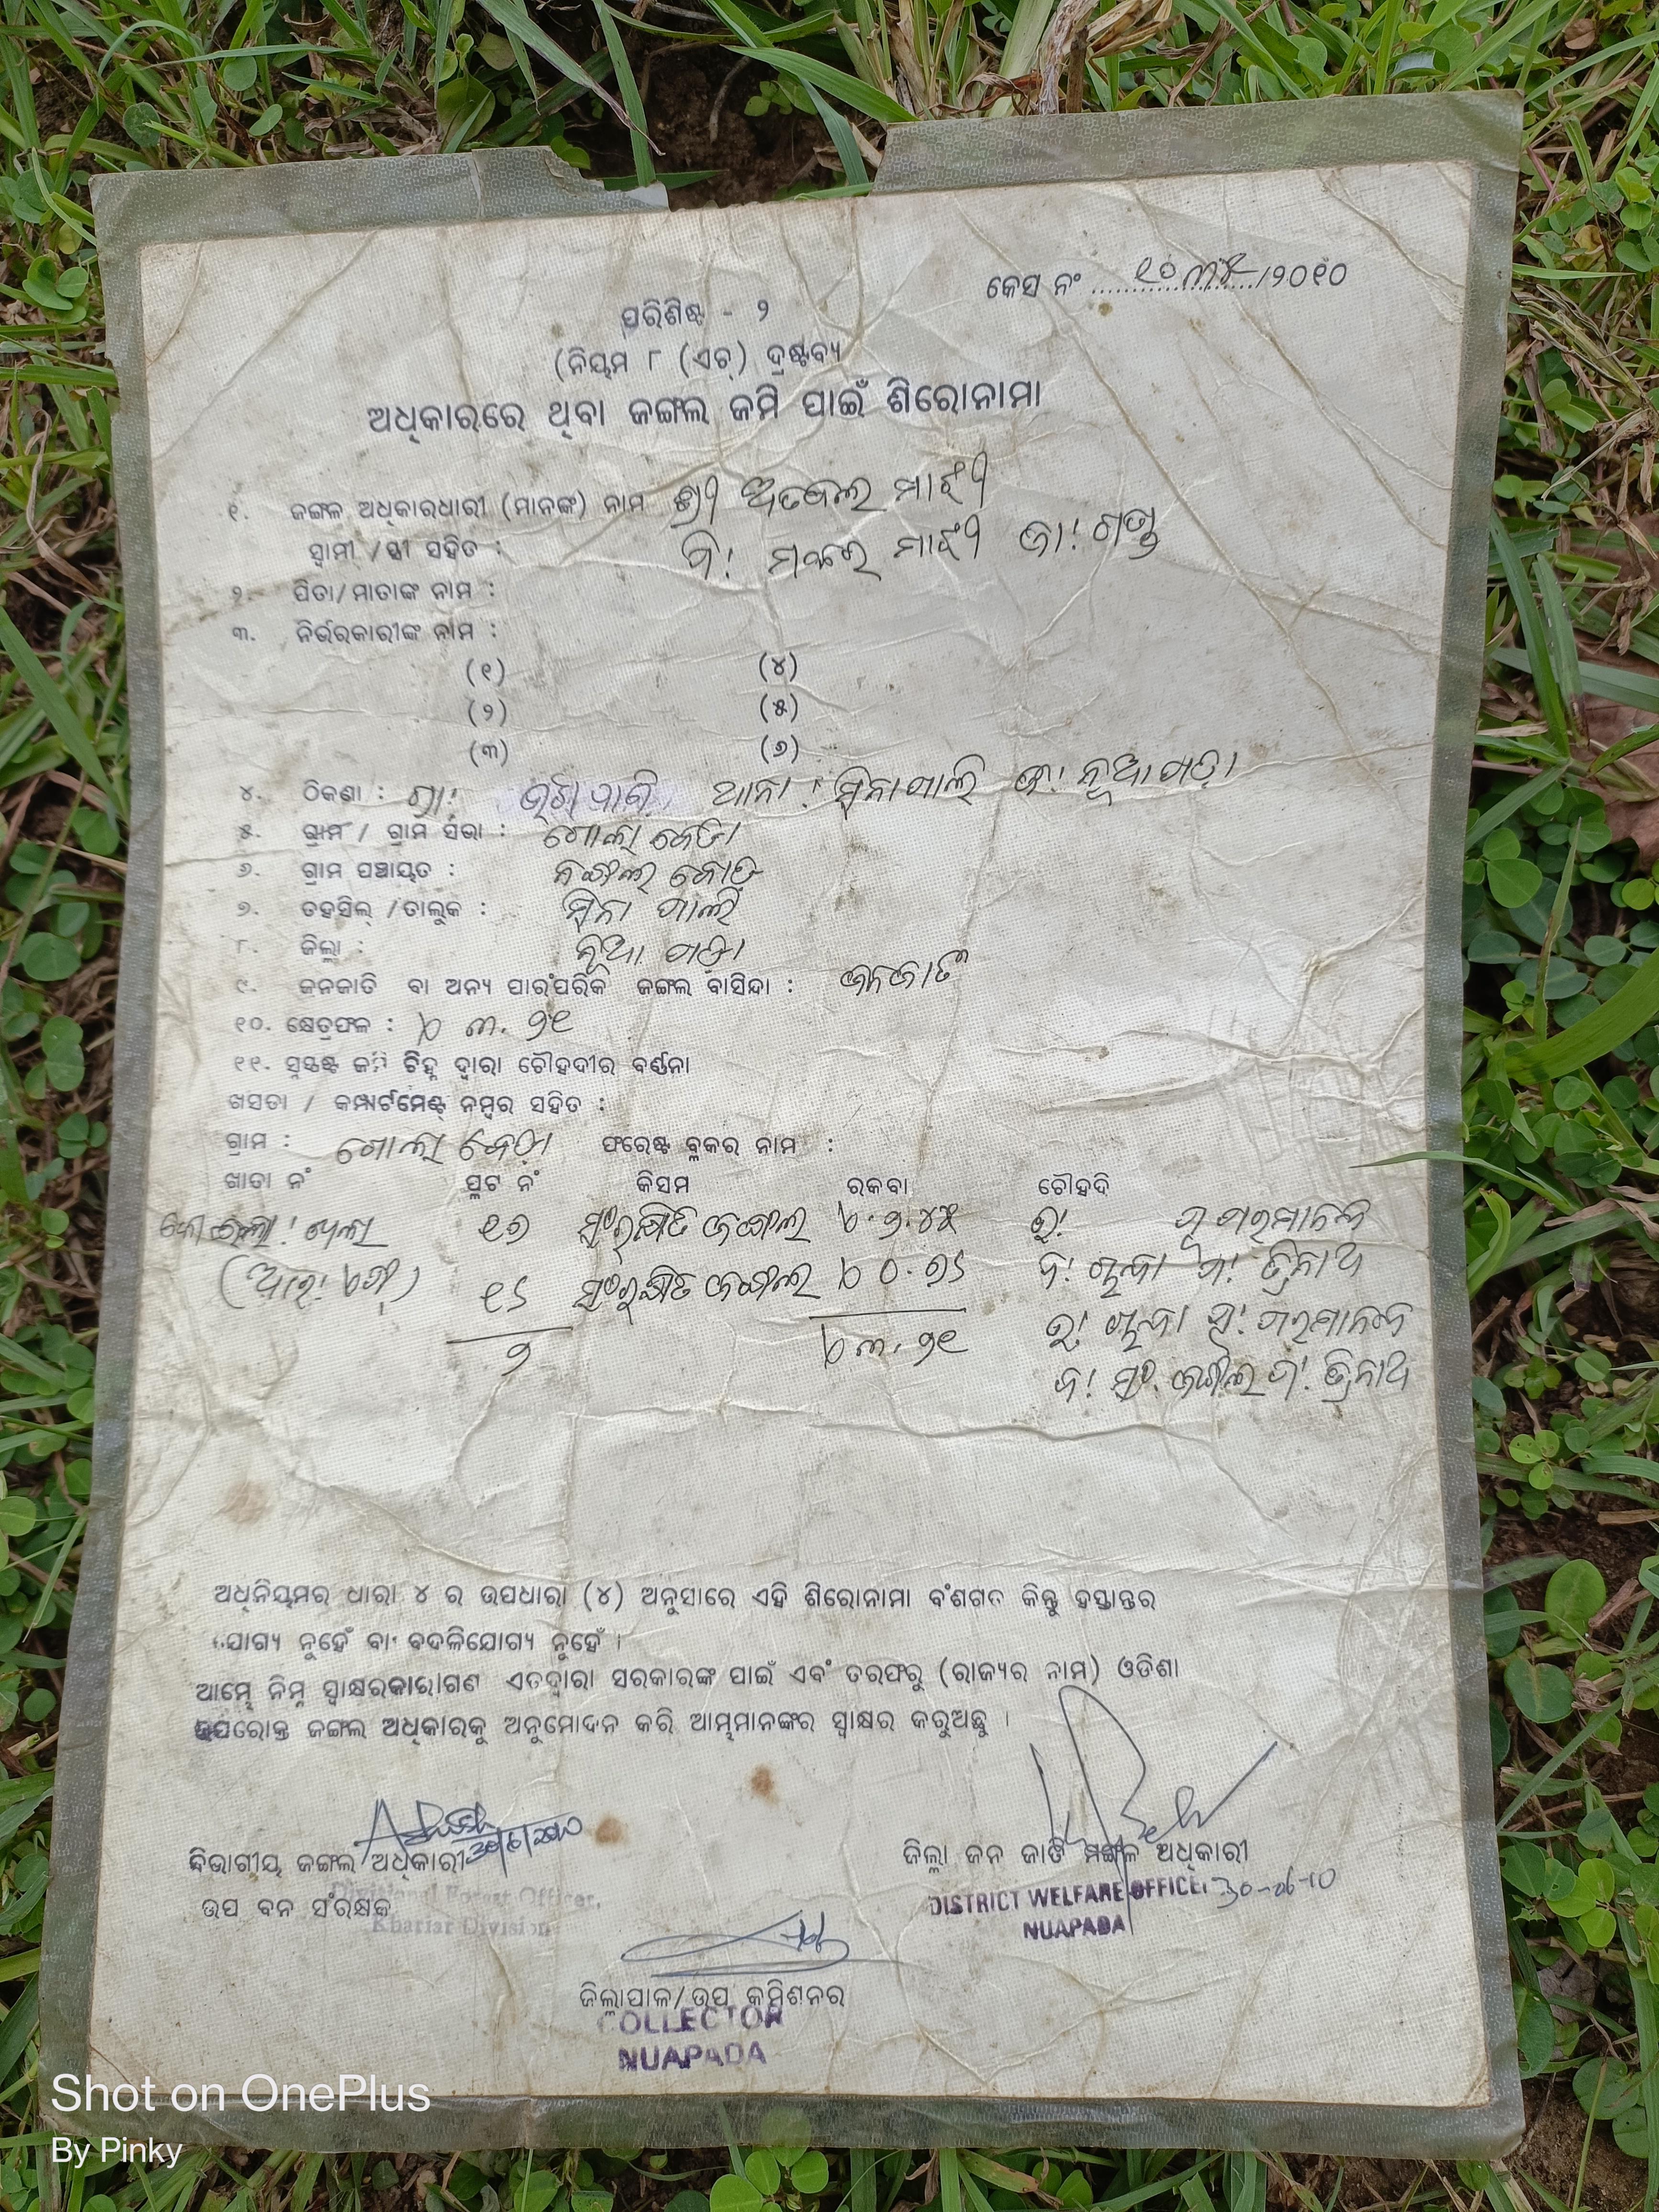 କେସ ନଂ ୧୦୩୪/୨୦୧୦
ପରିଶିଷ୍ଟ - ୨
(ନିୟମ ୮ (ଏଚ୍) ଦ୍ରଷ୍ଟବ୍ୟ
ଅଧିକାରରେ ଥିବା ଜଙ୍ଗଲ ଜମି ପାଇଁ ଶିରୋନାମା
୧. ଜଙ୍ଗଲ ଅଧିକାରଧାରୀ (ମାନଙ୍କ) ନାମ ଶ୍ରୀ ମାଝୀ
ସ୍ୱାମୀ /ସ୍ତ୍ରୀ ସହିତ : ପି! ମାଝୀ ଜା! ଗଣ୍ଡ
୨. ପିତା/ମାତାଙ୍କ ନାମ :
୩. ନିର୍ଭରକାରୀଙ୍କ ନାମ :
(୧) (୪)
(୨) (୫)
(୩) (୬)
୪. ଠିକଣା : ଗ୍ରା! ଥାନା : ସିନାପାଲି ଜି! ନୂଆପଡ଼ା
୫. ଗ୍ରାମ / ଗ୍ରାମ ସଭା : ଗୋଲା ବେଡା
୬. ଗ୍ରାମ ପଞ୍ଚାୟତ : କୋଟ
୭. ତହସିଲ୍ /ତାଲୁକ : ସିନା ପାଲି
୮. ଜିଲ୍ଲା : ନୂଆ ପଡ଼ା
୯. ଜନଜାତି ବା ଅନ୍ୟ ପାରଂପରିକ ଜଙ୍ଗଲ ବାସିନ୍ଦା : ଜନଜାତି
୧୦. କ୍ଷେତ୍ରଫଳ : ୩.୨୧
୧୧. ସୁସ୍ପଷ୍ଟ ଜମି ଚିହ୍ନ ଦ୍ୱାରା ଚୌହଦୀର ବର୍ଣ୍ଣନା
ଖସଡା / କମ୍ପାର୍ଟମେଣ୍ଟ୍ ନମ୍ବର ସହିତ :
ଗ୍ରାମ : ଗୋଲା ବେଡ଼ା ଫରେଷ୍ଟ ବ୍ଲକର ନାମ :
ଖାତା ନଂ ପ୍ଲଟ ନଂ କିସମ ରକବା ଚୌହଦି
୧୭ ସଂରକ୍ଷିତ ଜଙ୍ଗଲ ୨.୪୫ ଉ!
୧୮ ସଂରକ୍ଷିତ ଜଙ୍ଗଲ ୦.୭୬ ତ୍ରିନାଥ
୨ ୩.୨୧ ଉ!
ଦ! ସଂ. ଜଙ୍ଗଲ ପ! ତ୍ରିନାଥ
ଅଧିନିୟମର ଧାରା ୪ ର ଉପଧାରା (୪) ଅନୁସାରେ ଏହି ଶିରୋନାମା ବଂଶଗତ କିନ୍ତୁ ହସ୍ତାନ୍ତର
ଯୋଗ୍ୟ ନୁହେଁ ବା ବଦଳିଯୋଗ୍ୟ ନୁହେଁ ।
ଆମ୍ଭେ ନିମ୍ନ ସ୍ୱାକ୍ଷରକାରୀଗଣ ଏତଦ୍ୱାରା ସରକାରଙ୍କ ପାଇଁ ଏବଂ ତରଫରୁ (ରାଜ୍ୟର ନାମ) ଓଡିଶା
ଉପରୋକ୍ତ ଜଙ୍ଗଲ ଅଧିକାରକୁ ଅନୁମୋଦନ କରି ଆମ୍ଭମାନଙ୍କର ସ୍ୱାକ୍ଷର କରୁଅଛୁ ।
30/6/2010
ବିଭାଗୀୟ ଜଙ୍ଗଲ ଅଧିକାରୀ
ଉପ ବନ ସଂରକ୍ଷକ
Divisional Forest Officer,
Khariar Division
ଜିଲ୍ଲା ଜନ ଜାତି ମଙ୍ଗଳ ଅଧିକାରୀ
DISTRICT WELFARE OFFICER 30-06-10
NUAPADA
ଜିଲ୍ଲାପାଳ/ଉପ କମିଶନର
COLLECTOR
NUAPADA
Shot on OnePlus
By Pinky